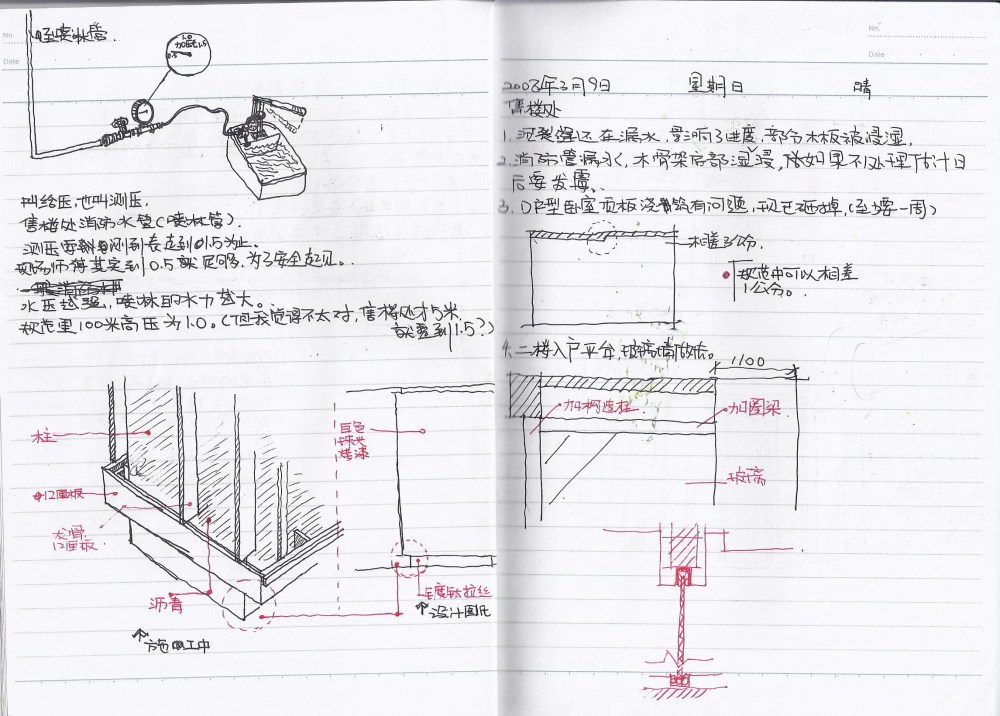 No.
Date
喷淋管.
1.0
加压1.5
0.5
叫给压,也叫测压,
售楼处消防水管(喷淋管)
测压要 测到表走到1.5为止。
到0.5就足够,为了安全起见。
水压越强,喷淋的水力越大。
规范里100米高压为1.0。(但我觉得不太对,售楼处才5米,
就要到1.5?)
柱
12厘板
木骨,
12厘板
沥青
施工中
白色
珠光
烤漆
镀钛拉丝
设计图纸
No.
Date
2008年3月9日 星期日 晴
售楼处
1. 沉裂缝还在漏水,影响了进度,部分木板被浸湿,
2. 消防管漏水,木骨架底部湿浸,假如果不处理估计日
后要发霉、
3. D户型卧室面板浇筑有问题,现已砸掉,(至少要一周)
相差3公分.
规范中可以相差
1公分。
4. 二楼入户平台,玻璃墙做法。
1100
加构造柱
加圈梁
玻璃